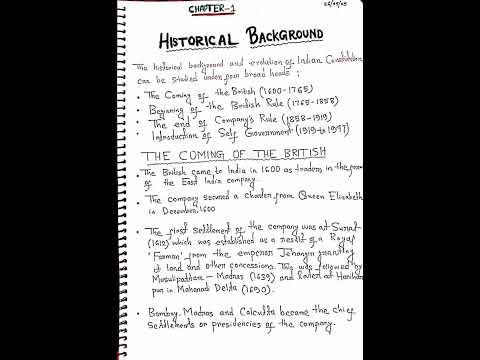 CHAPTER-1
HISTORICAL BACKGROUND
The historical background and evolution of Indian Constitution
can be studied under four broad heads:
• The Coming of the British (1600-1765)
• Beginning of the British Rule (1765-1858)
• The end of Company's Rule (1858-1919)
• Introduction of Self Government (1919 to 1947)
THE COMING OF THE BRITISH
• The British came to India in 1600 as traders in the form
of the East India company.
• The company secured a charter from Queen Elizabeth
in December, 1600
• The first settlement of the company was at Surat
(1612) which was established as a result of a Royal
'Farman' from the emperor Jehangir granting
it land and other concessions. This was followed by
Masulipatnam - Madras (1639) and later at
pur in Mahanadi Delta (1690).
• Bombay, Madras and Calcutta became the chief
settlements or presidencies of the company.